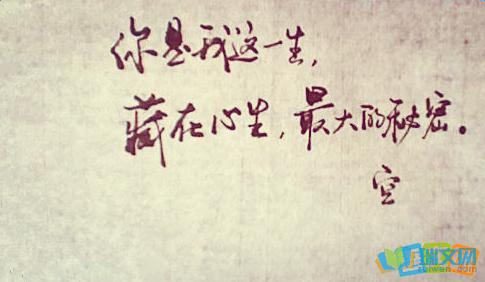 你是我这一生,
藏在心生,最大的秘密。
空
瑞文网
ruiwen.com